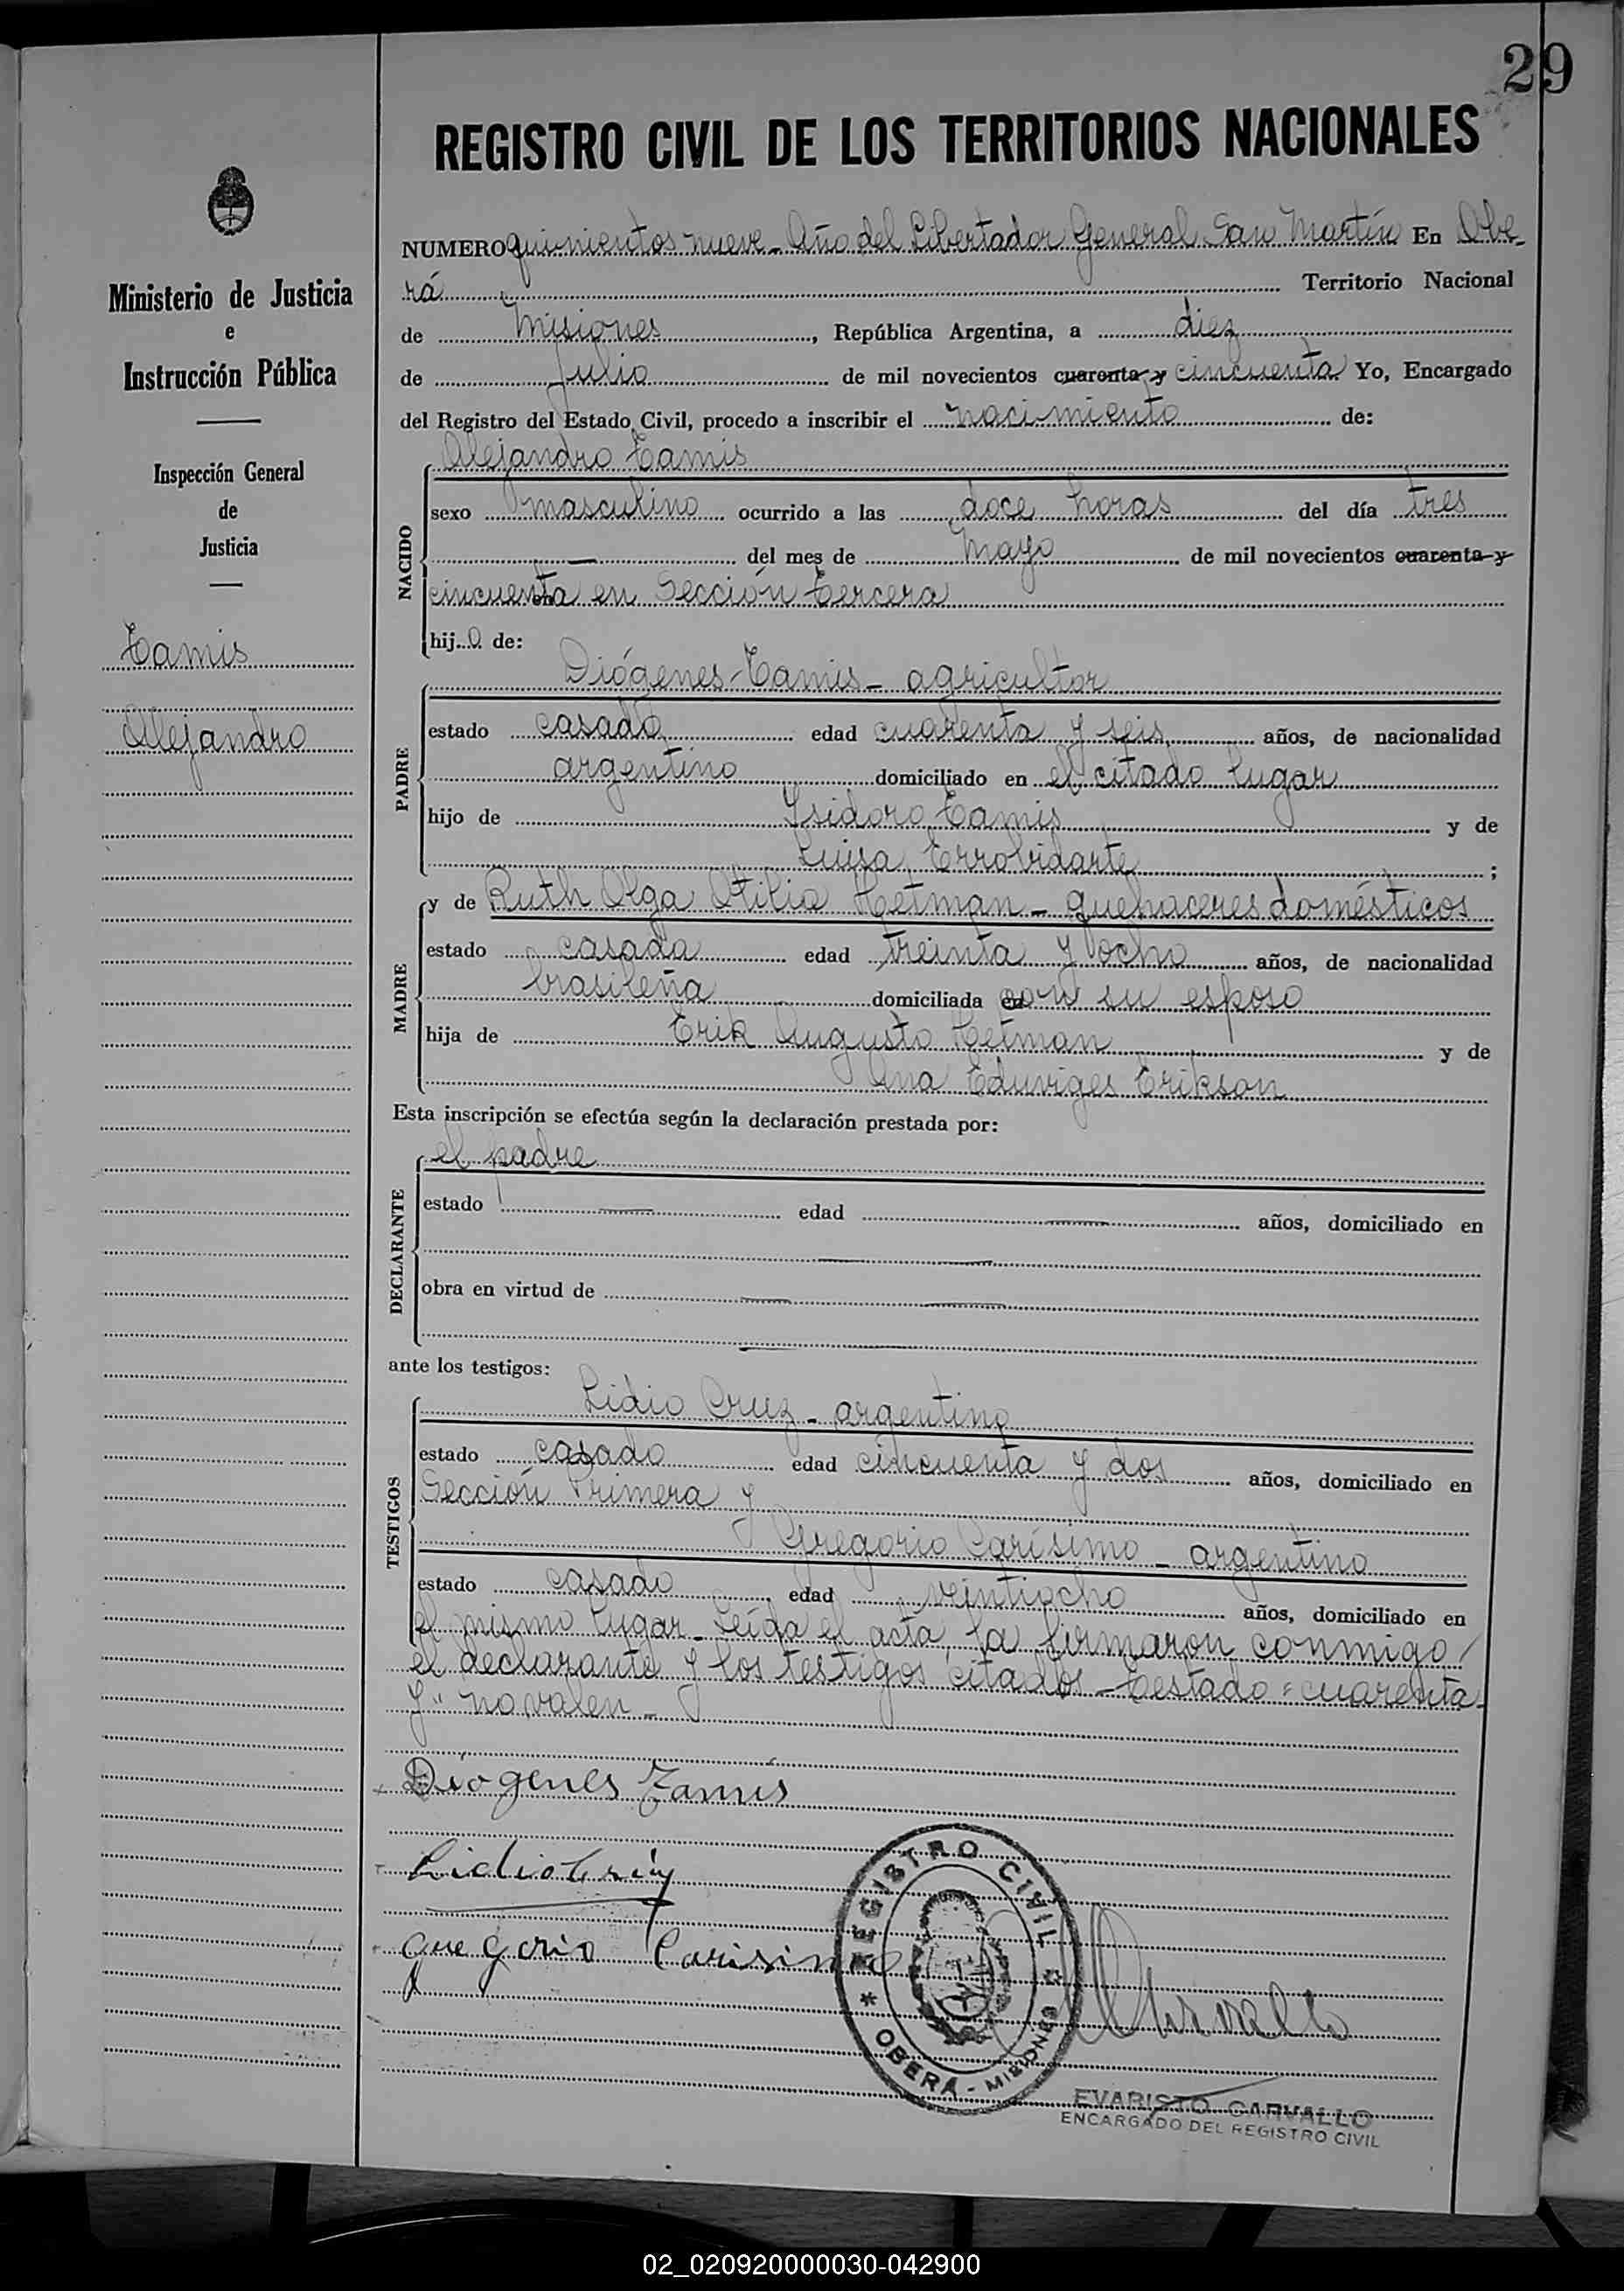 29
REGISTRO CIVIL DE LOS TERRITORIOS NACIONALES
Ministerio de Justicia
e
Instrucción Pública
Inspección General
de
Justicia
Tamis
Alejandro
NUMERO quinientos nueve - Año del Libertador General San Martín En Obe-
rá Territorio Nacional
de Misiones, República Argentina, a diez
de Julio de mil novecientos cuarenta y cincuenta Yo, Encargado
del Registro del Estado Civil, procedo a inscribir el nacimiento de:
Alejandro Tamis
NACIDO
sexo masculino ocurrido a las doce horas del día tres
— del mes de Mayo de mil novecientos cuarenta y
cincuenta en Sección Tercera
hijo de:
PADRE
Diógenes Tamis - agricultor
estado casado edad cuarenta y seis años, de nacionalidad
argentino domiciliado en el citado lugar
hijo de Isidoro Tamis y de
Luisa Errobidarte;
MADRE
y de Ruth Olga Otilia Hetman - quehaceres domésticos
estado casada edad treinta y ocho años, de nacionalidad
brasileña domiciliada con su esposo
hija de Erik Augusto Hetman y de
Ana Eduviges Erikson
Esta inscripción se efectúa según la declaración prestada por:
DECLARANTE
el padre
estado — edad — años, domiciliado en
—
obra en virtud de —
—
ante los testigos:
TESTIGOS
Lidio Cruz - argentino
estado casado edad cincuenta y dos años, domiciliado en
Sección Primera y
Gregorio Carísimo - argentino
estado casado edad veintiocho años, domiciliado en
el mismo lugar - Leída el acta, la firmaron conmigo
el declarante y los testigos citados - Testado "cuarenta
y" no valen -
Diogenes Tamis
Lidio Cruz
Gregorio Carisimo
REGISTRO CIVIL
OBERÁ - MISIONES
Carvallo
EVARISTO CARVALLO
ENCARGADO DEL REGISTRO CIVIL
02_020920000030-042900